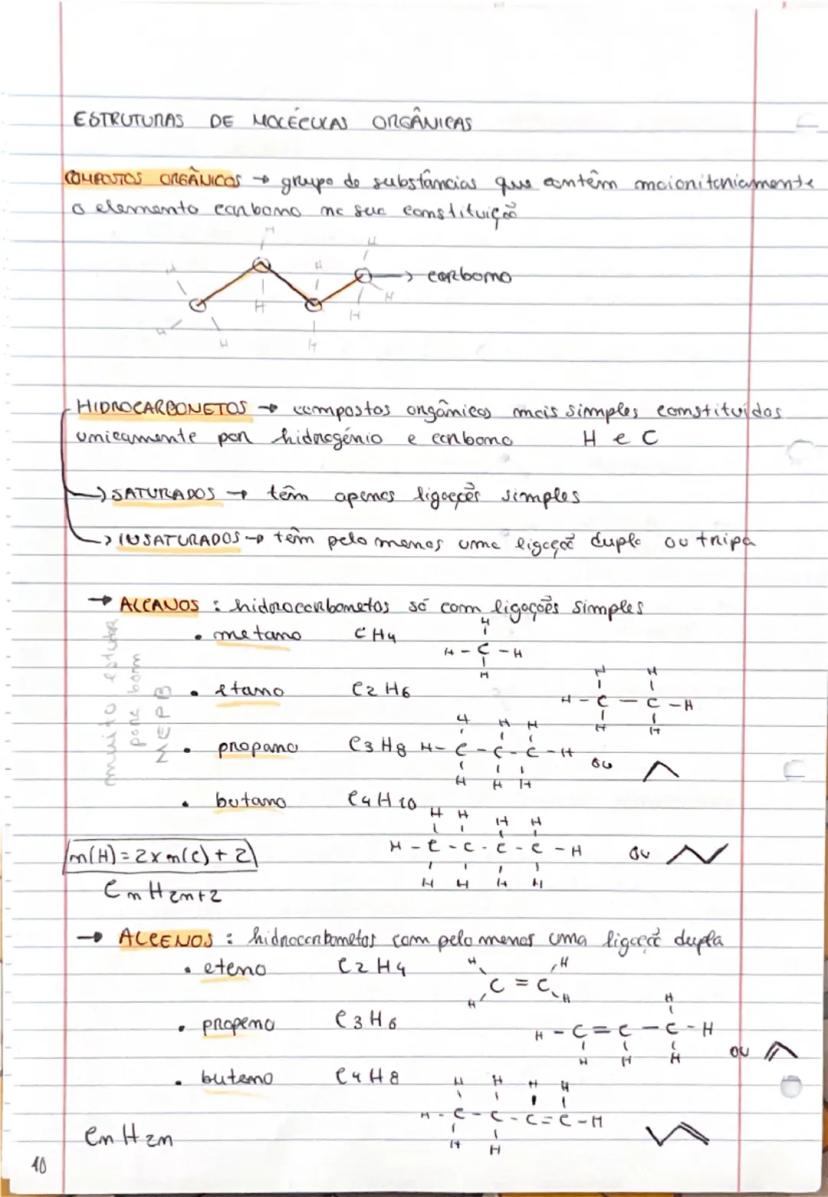 ESTRUTURAS DE MOLÉCULAS ORGÂNICAS
COMPOSTOS ORGÂNICOS → grupo de substâncias que contêm maioritariamente
o elemento carbono na sua constituição
H H H H → carbono
H H H H H H
HIDROCARBONETOS → compostos orgânicos mais simples constituídos
unicamente por hidrogénio e carbono H e C
→ SATURADOS → têm apenas ligações simples
→ INSATURADOS → têm pelo menos uma ligação dupla ou tripa
→ ALCANOS : hidrocarbonetos só com ligações simples
muito estutar
para bom
MEPB
• metano CH4
H
H - C - H
H
• etano C2H6
H H
H - C - C - H
H H
• propano C3H8
H H H
H - C - C - C - H ou
H H H
• butano C4H10
H H H H
H - C - C - C - C - H ou
H H H H
n(H) = 2 x n(C) + 2
CnH2n+2
→ ALCENOS : hidrocarbonetos com pelo menos uma ligação dupla
• eteno C2H4
H H
C = C
H H
• propeno C3H6
H
H - C = C - C - H ou
H H H
• buteno C4H8
H H H H
H - C - C - C = C - H
H H
CnH2n
10